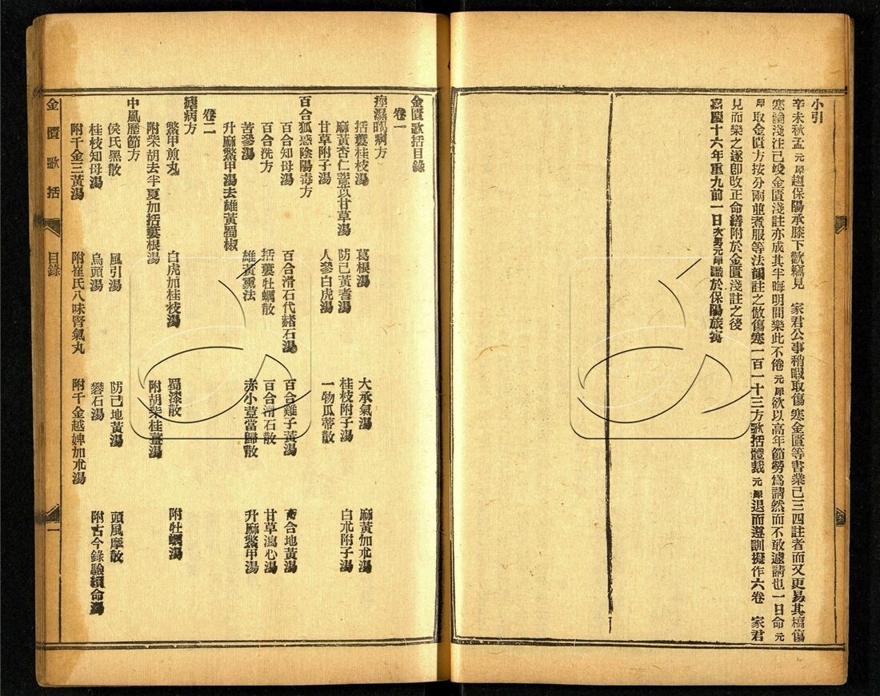 小引
辛未秋孟元犀趨保陽承膝下歡竊見 家君公事稍暇取傷寒金匱等書業已三四註者而又更易其稿傷
寒論淺注已竣金匱淺註亦成其半晦明間樂此不倦元犀欲以高年節勞為請然而不敢遽請也一日命元
犀取金匱方按分兩並煮服等法韻註之倣傷寒一百一十三方歌括體裁元犀退而遵訓擬作六卷 家君
見而樂之遂即改正命繕附於金匱淺註之後
嘉慶十六年重九前一日次男元犀識於保陽旅寓
金匱歌括目錄
卷一
痙濕暍病方
括蔞桂枝湯 葛根湯 大承氣湯 麻黃加朮湯
麻黃杏仁薏苡甘草湯 防己黃耆湯 桂枝附子湯 白朮附子湯
甘草附子湯 人參白虎湯 一物瓜蒂散
百合狐惑陰陽毒方
百合知母湯 百合滑石代赭石湯 百合雞子黃湯 百合地黃湯
百合洗方 括蔞牡蠣散 百合滑石散 甘草瀉心湯
苦參湯 雄黃熏法 赤小荳當歸散 升麻鱉甲湯
升麻鱉甲湯去雄黃蜀椒
卷二
瘧病方
鱉甲煎丸 白虎加桂枝湯 蜀漆散 附牡蠣湯
附柴胡去半夏加括蔞根湯 附胡柴桂薑湯
中風歷節方
侯氏黑散 風引湯 防己地黃湯 頭風摩散
桂枝知母湯 烏頭湯 礬石湯 附古今錄驗續命湯
附千金三黃湯 附崔氏八味腎氣丸 附千金越婢加朮湯
金匱歌括 目錄 一